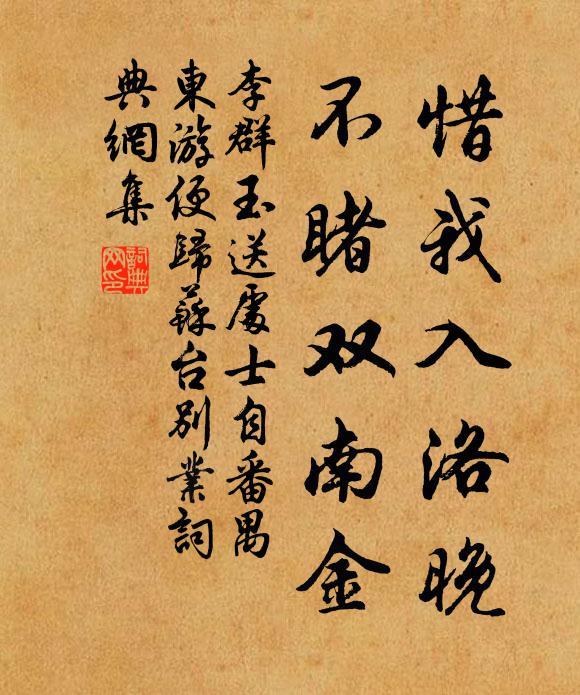 惜我入洛晚
不睹双南金
李群玉送處士自番禺
東游便歸蘇台别業詞
典網集
詞典
网印